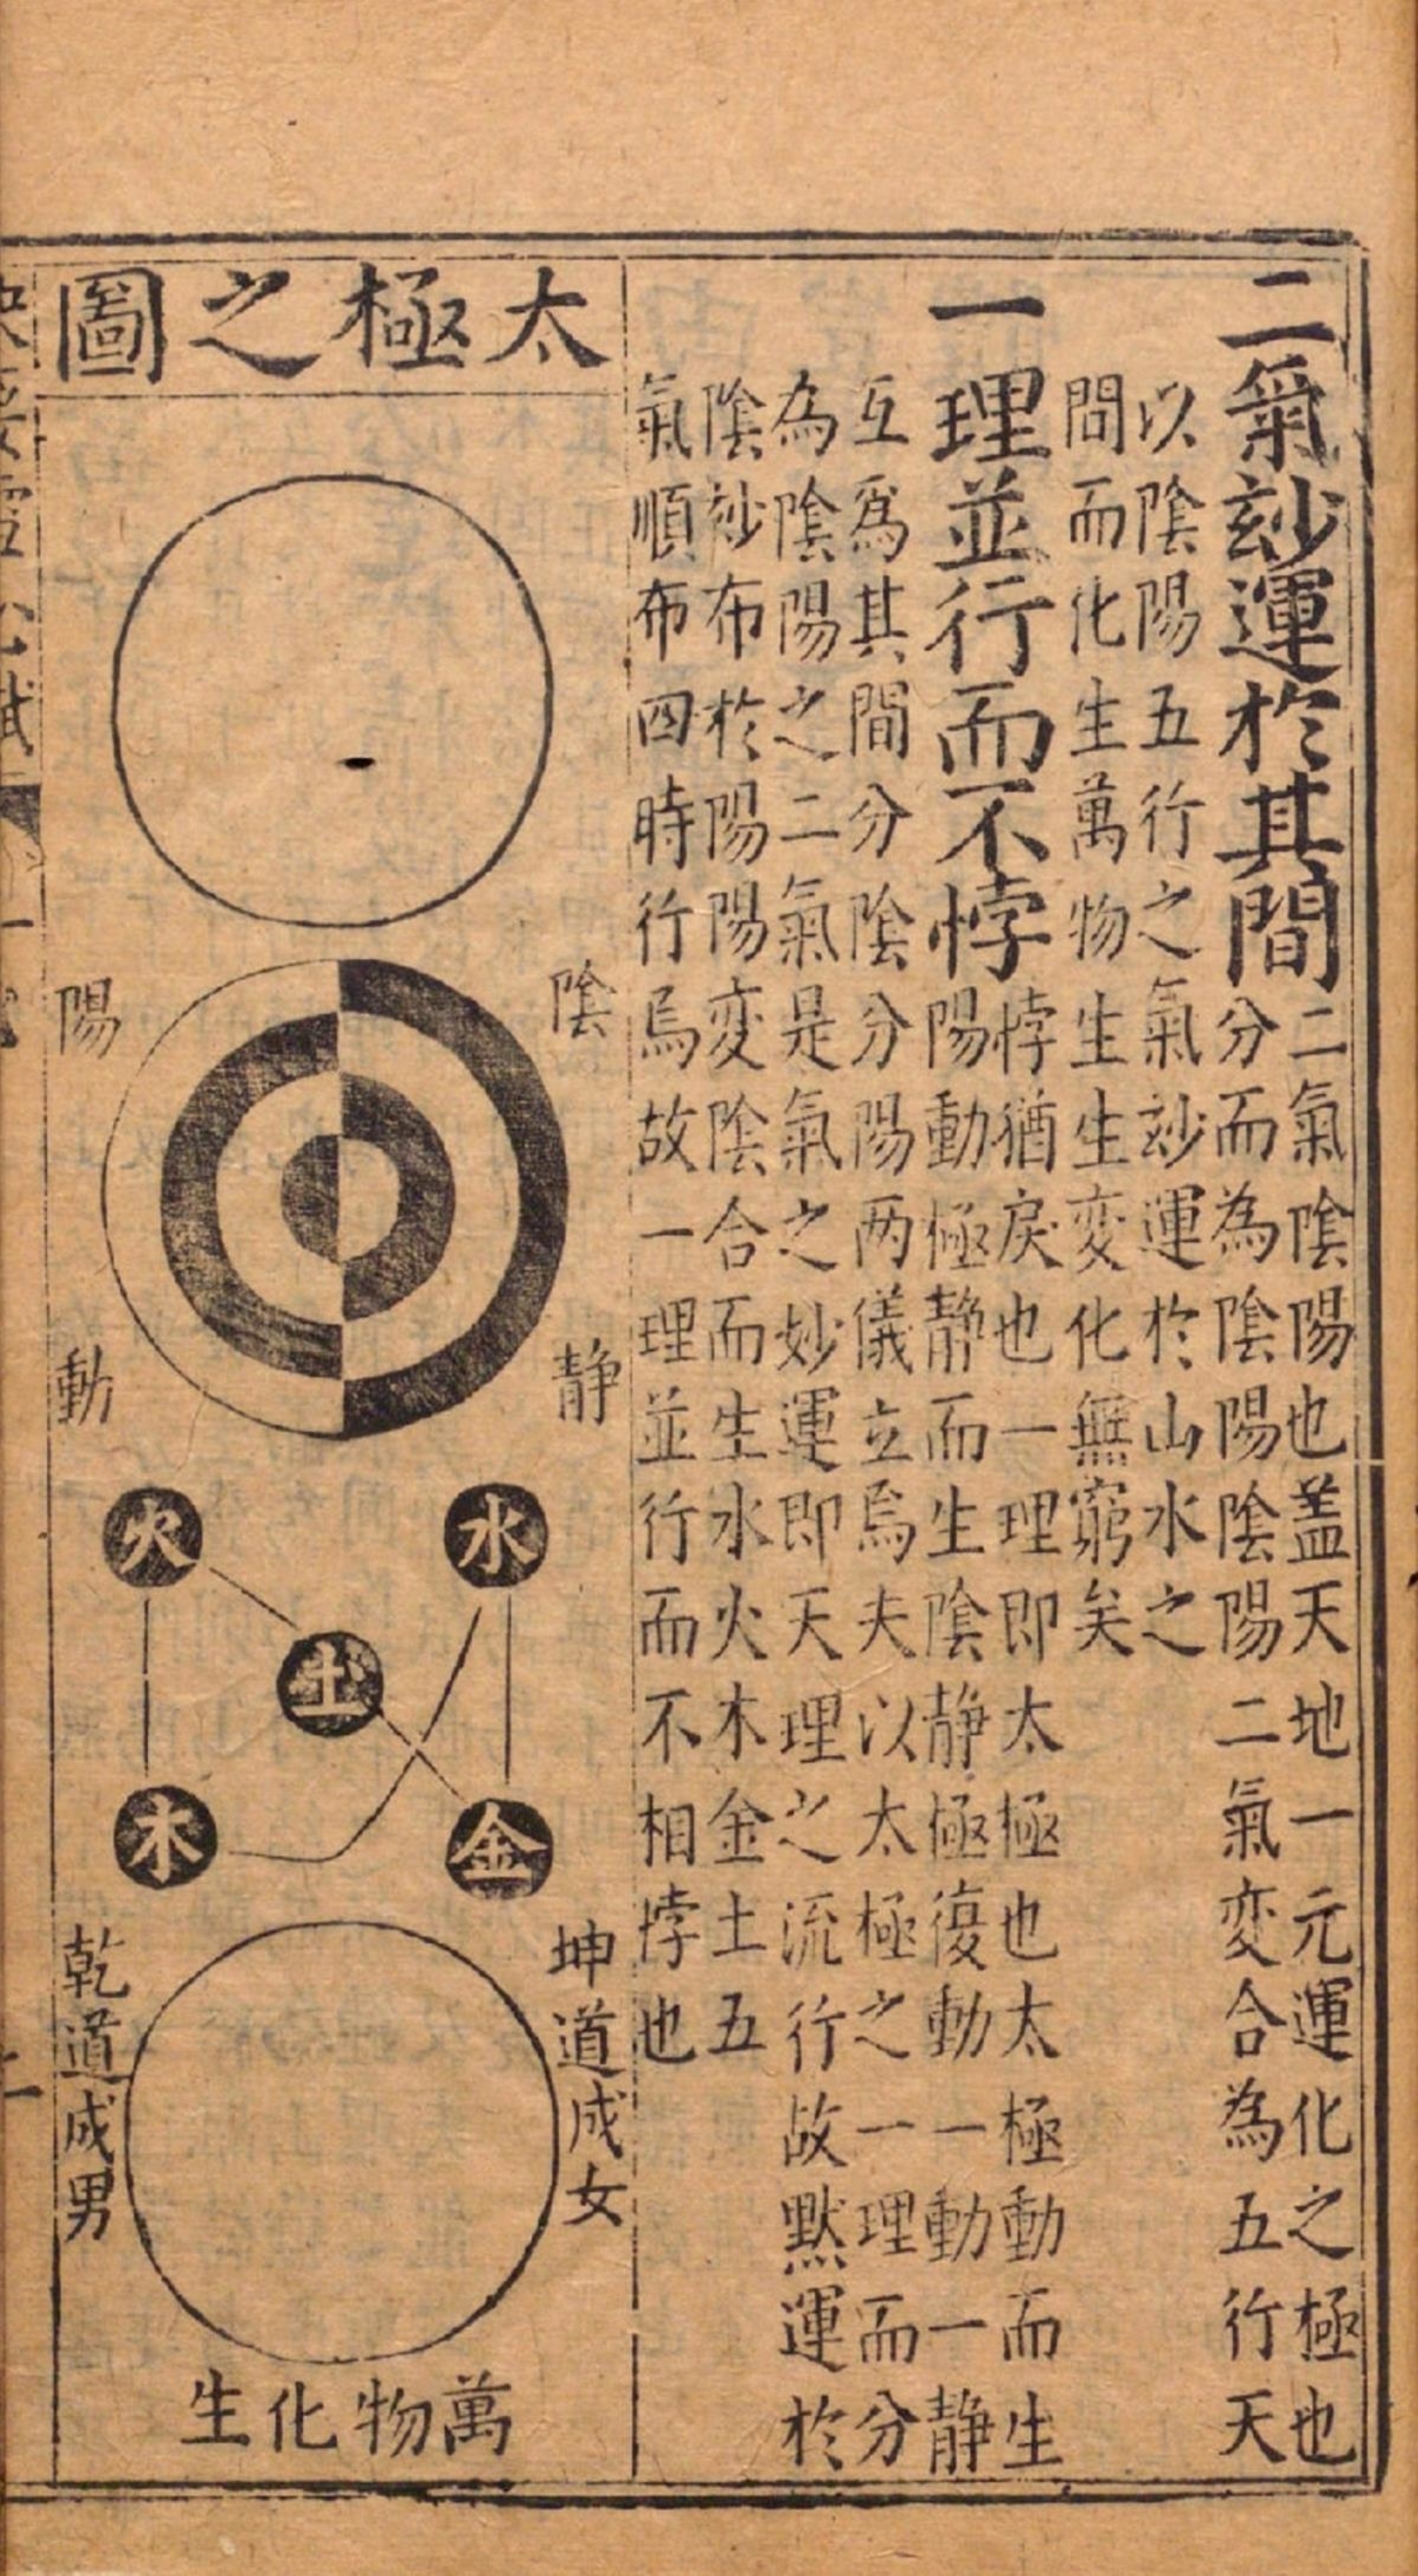 二氣玅運於其間
二氣陰陽也盖天地一元運化之極也
分而為陰陽陰陽二氣変合為五行天
以陰陽五行之氣玅運於山水之
問而化生萬物生生変化無窮矣
一理並行而不悖
悖猶戾也一理即太極也太極動而生
陽動極静而生陰静極復動一動一静
互爲其間分陰分陽两儀立焉夫以太極之一理而分
為陰陽之二氣是氣之妙運即天理之流行故默運於
陰玅布於陽陽変陰合而生水火木金土五
氣順布四時行焉故一理並行而不相悖也
太極之圖
陰
陽
静
動
水
火
土
金
木
坤道成女
乾道成男
萬物化生